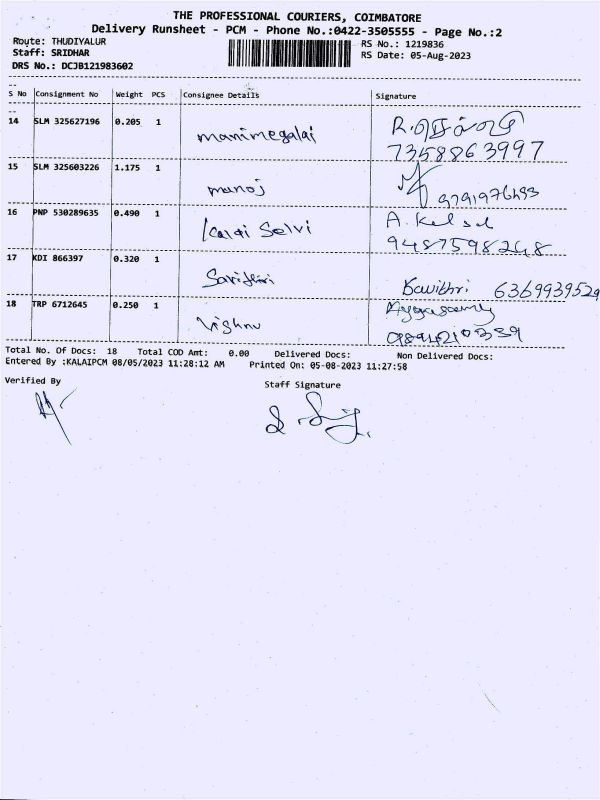 THE PROFESSIONAL COURIERS, COIMBATORE
Delivery Runsheet - PCM - Phone No.:0422-3505555 - Page No.:2
Route: THUDIYALUR RS No.: 1219836
Staff: SRIDHAR RS Date: 05-Aug-2023
DRS No.: DCJB121983602
S No Consignment No Weight PCS Consignee Details Signature
14 SLM 325627196 0.205 1 manimegalai R.
7358863997
15 SLM 325603226 1.175 1 manoj
16 PNP 530289635 0.490 1 Kalai Selvi A.
9487598248
17 KDI 866397 0.320 1 Savithiri Savithri 6369939529
18 TRP 6712645 0.250 1 Vishnu
Total No. Of Docs: 18 Total COD Amt: 0.00 Delivered Docs: Non Delivered Docs:
Entered By :KALAIPCM 08/05/2023 11:28:12 AM Printed On: 05-08-2023 11:27:58
Verified By Staff Signature